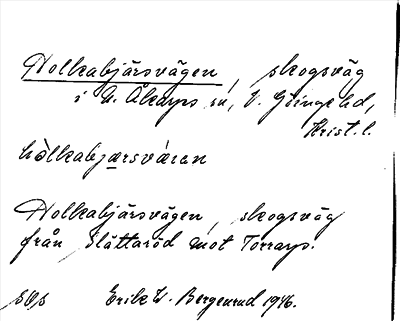 Holkabjärsvägen, skogsväg
i N. Åkarps sn, V. Göinge hd,
Krist. l.
hòlkabjærsvàran
Holkabjärsvägen, skogsväg
från Slättaröd mot Torrarp.
Erik W. Bergenrud 1946.